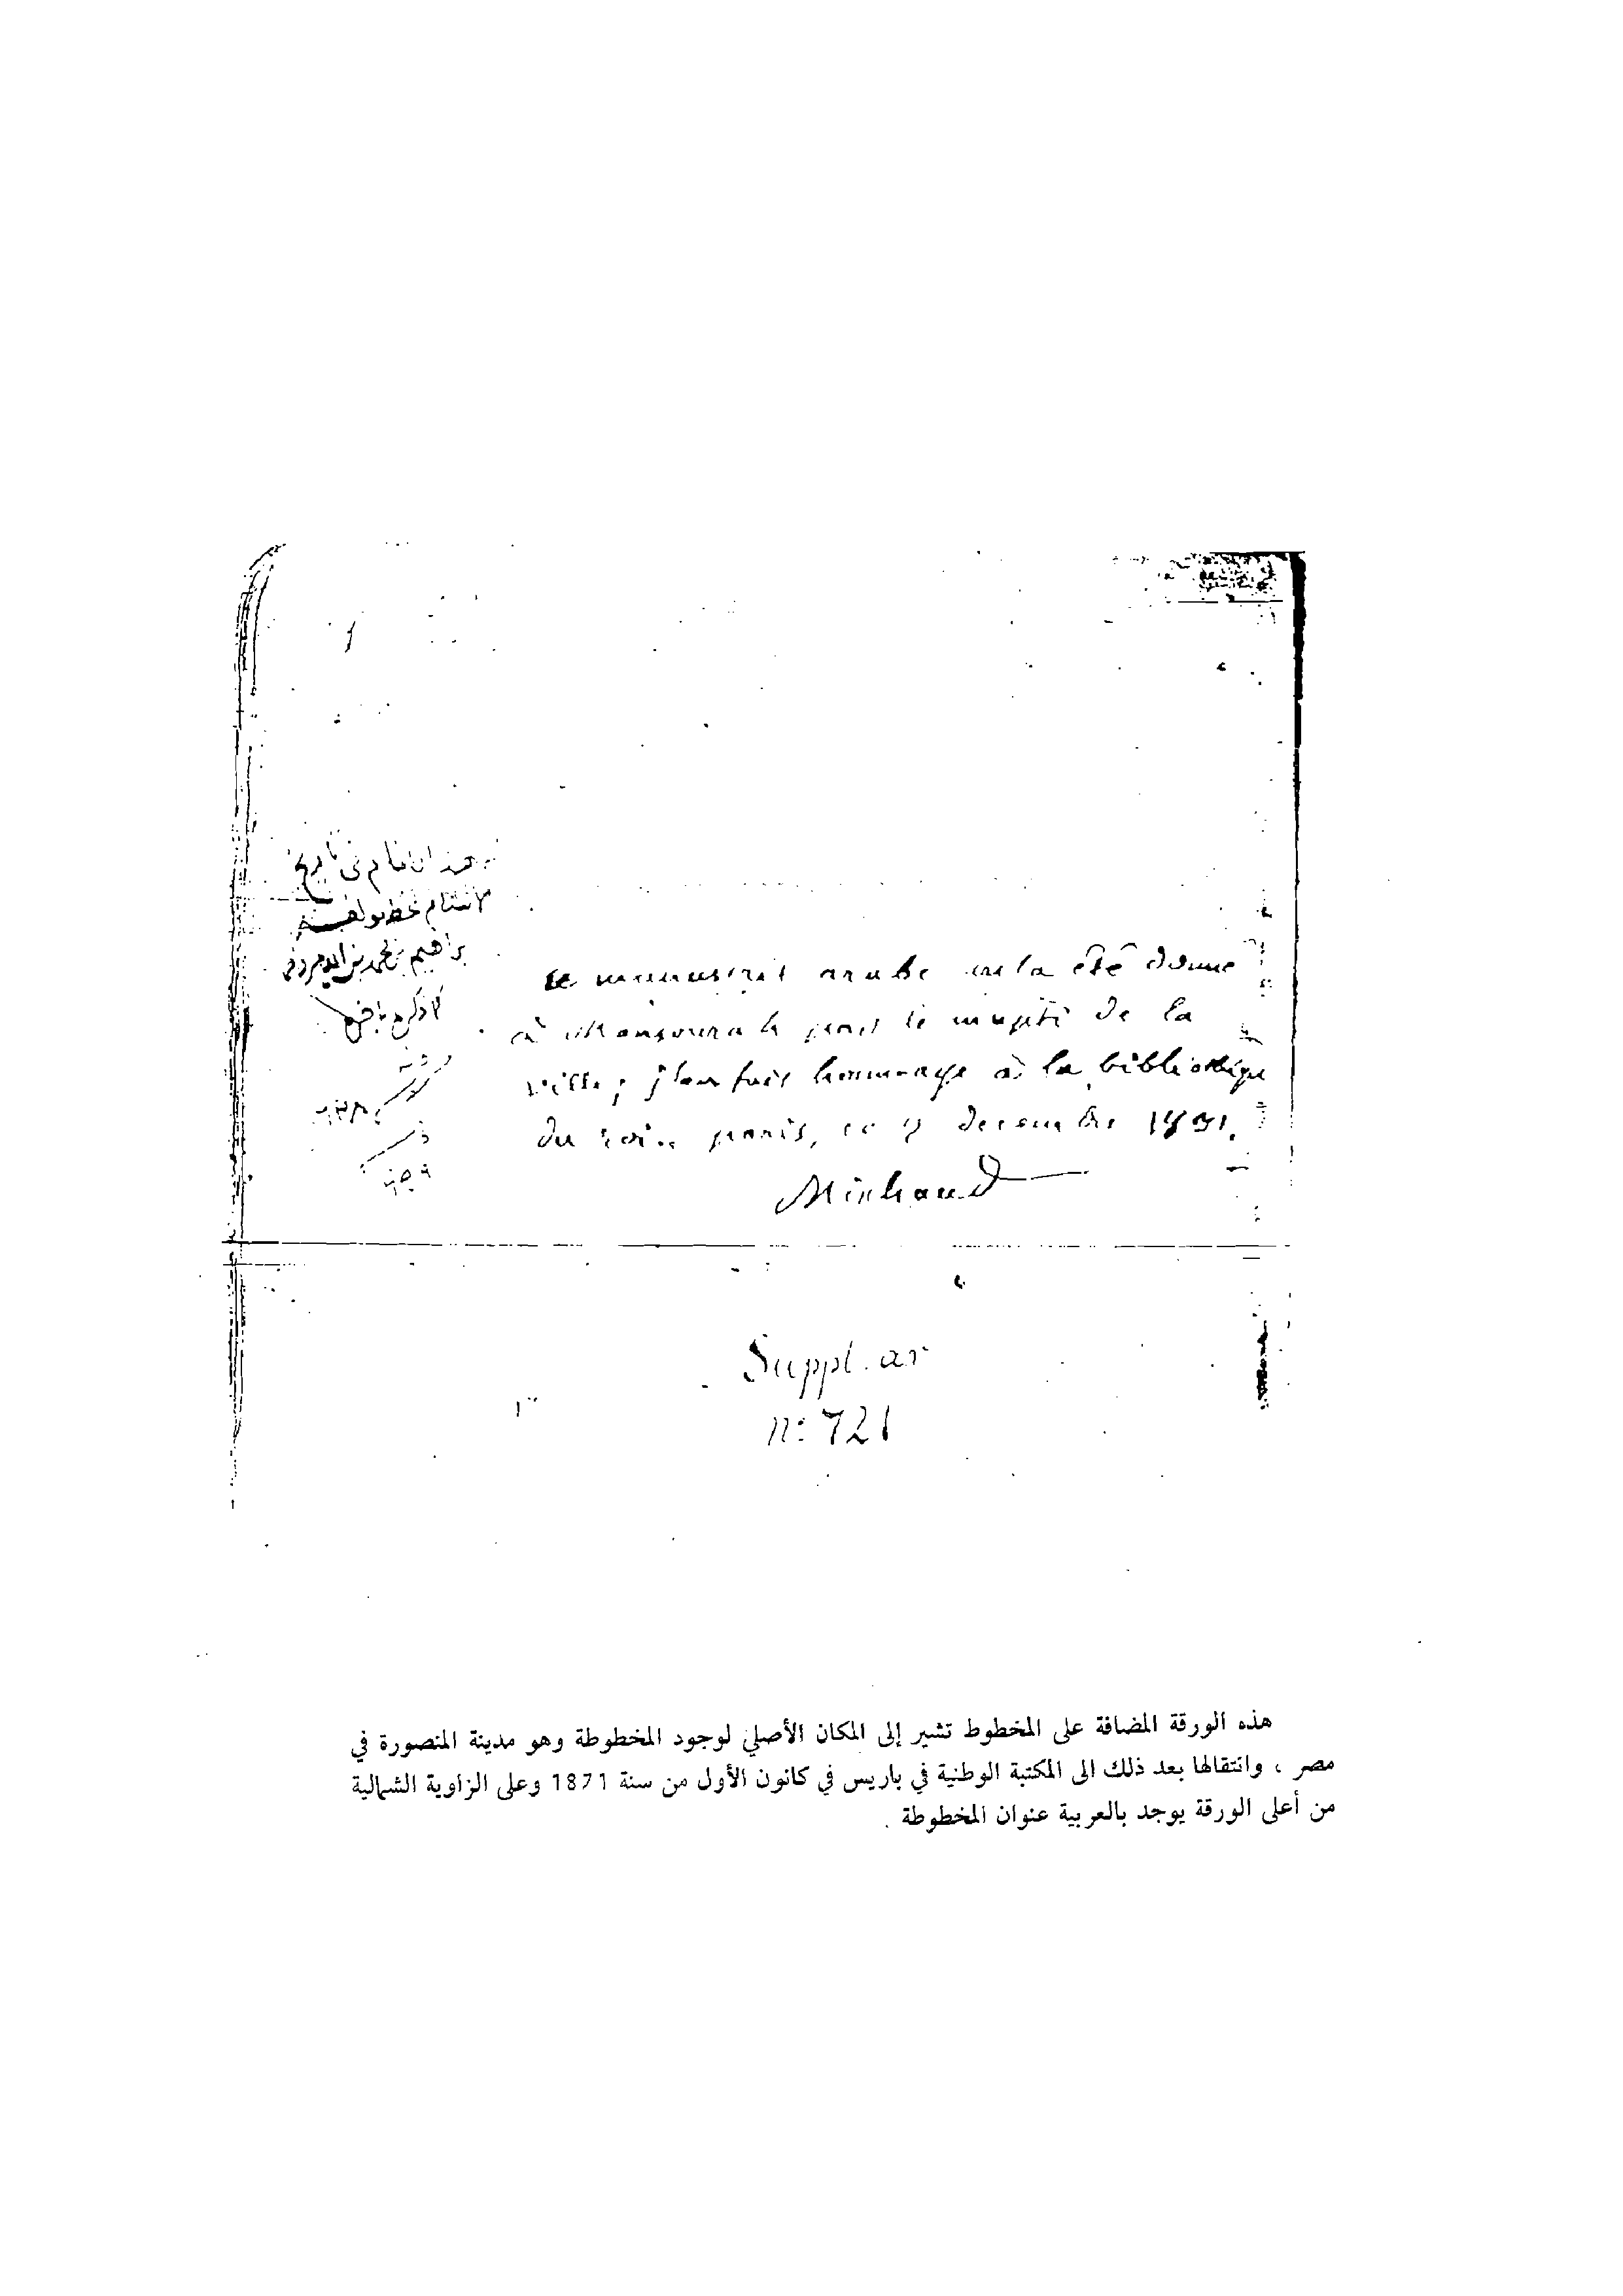 تاريخ
بخط مولفه
ابراهيم بن محمد بن
ce manuscrit arabe m'a été donné
à Mansourah par le mufti de la
ville; j'en fais hommage à la bibliothèque
du roi. paris, ce 9 decembre
Michaud
Suppl. ar
n: 721
هذه الورقة المضافة على المخطوط تشير إلى المكان الأصلي لوجود المخطوطة وهو مدينة المنصورة في
مصر ، وانتقالها بعد ذلك الى المكتبة الوطنية في باريس في كانون الأول من سنة 1871 وعلى الزاوية الشمالية
من أعلى الورقة يوجد بالعربية عنوان المخطوطة .